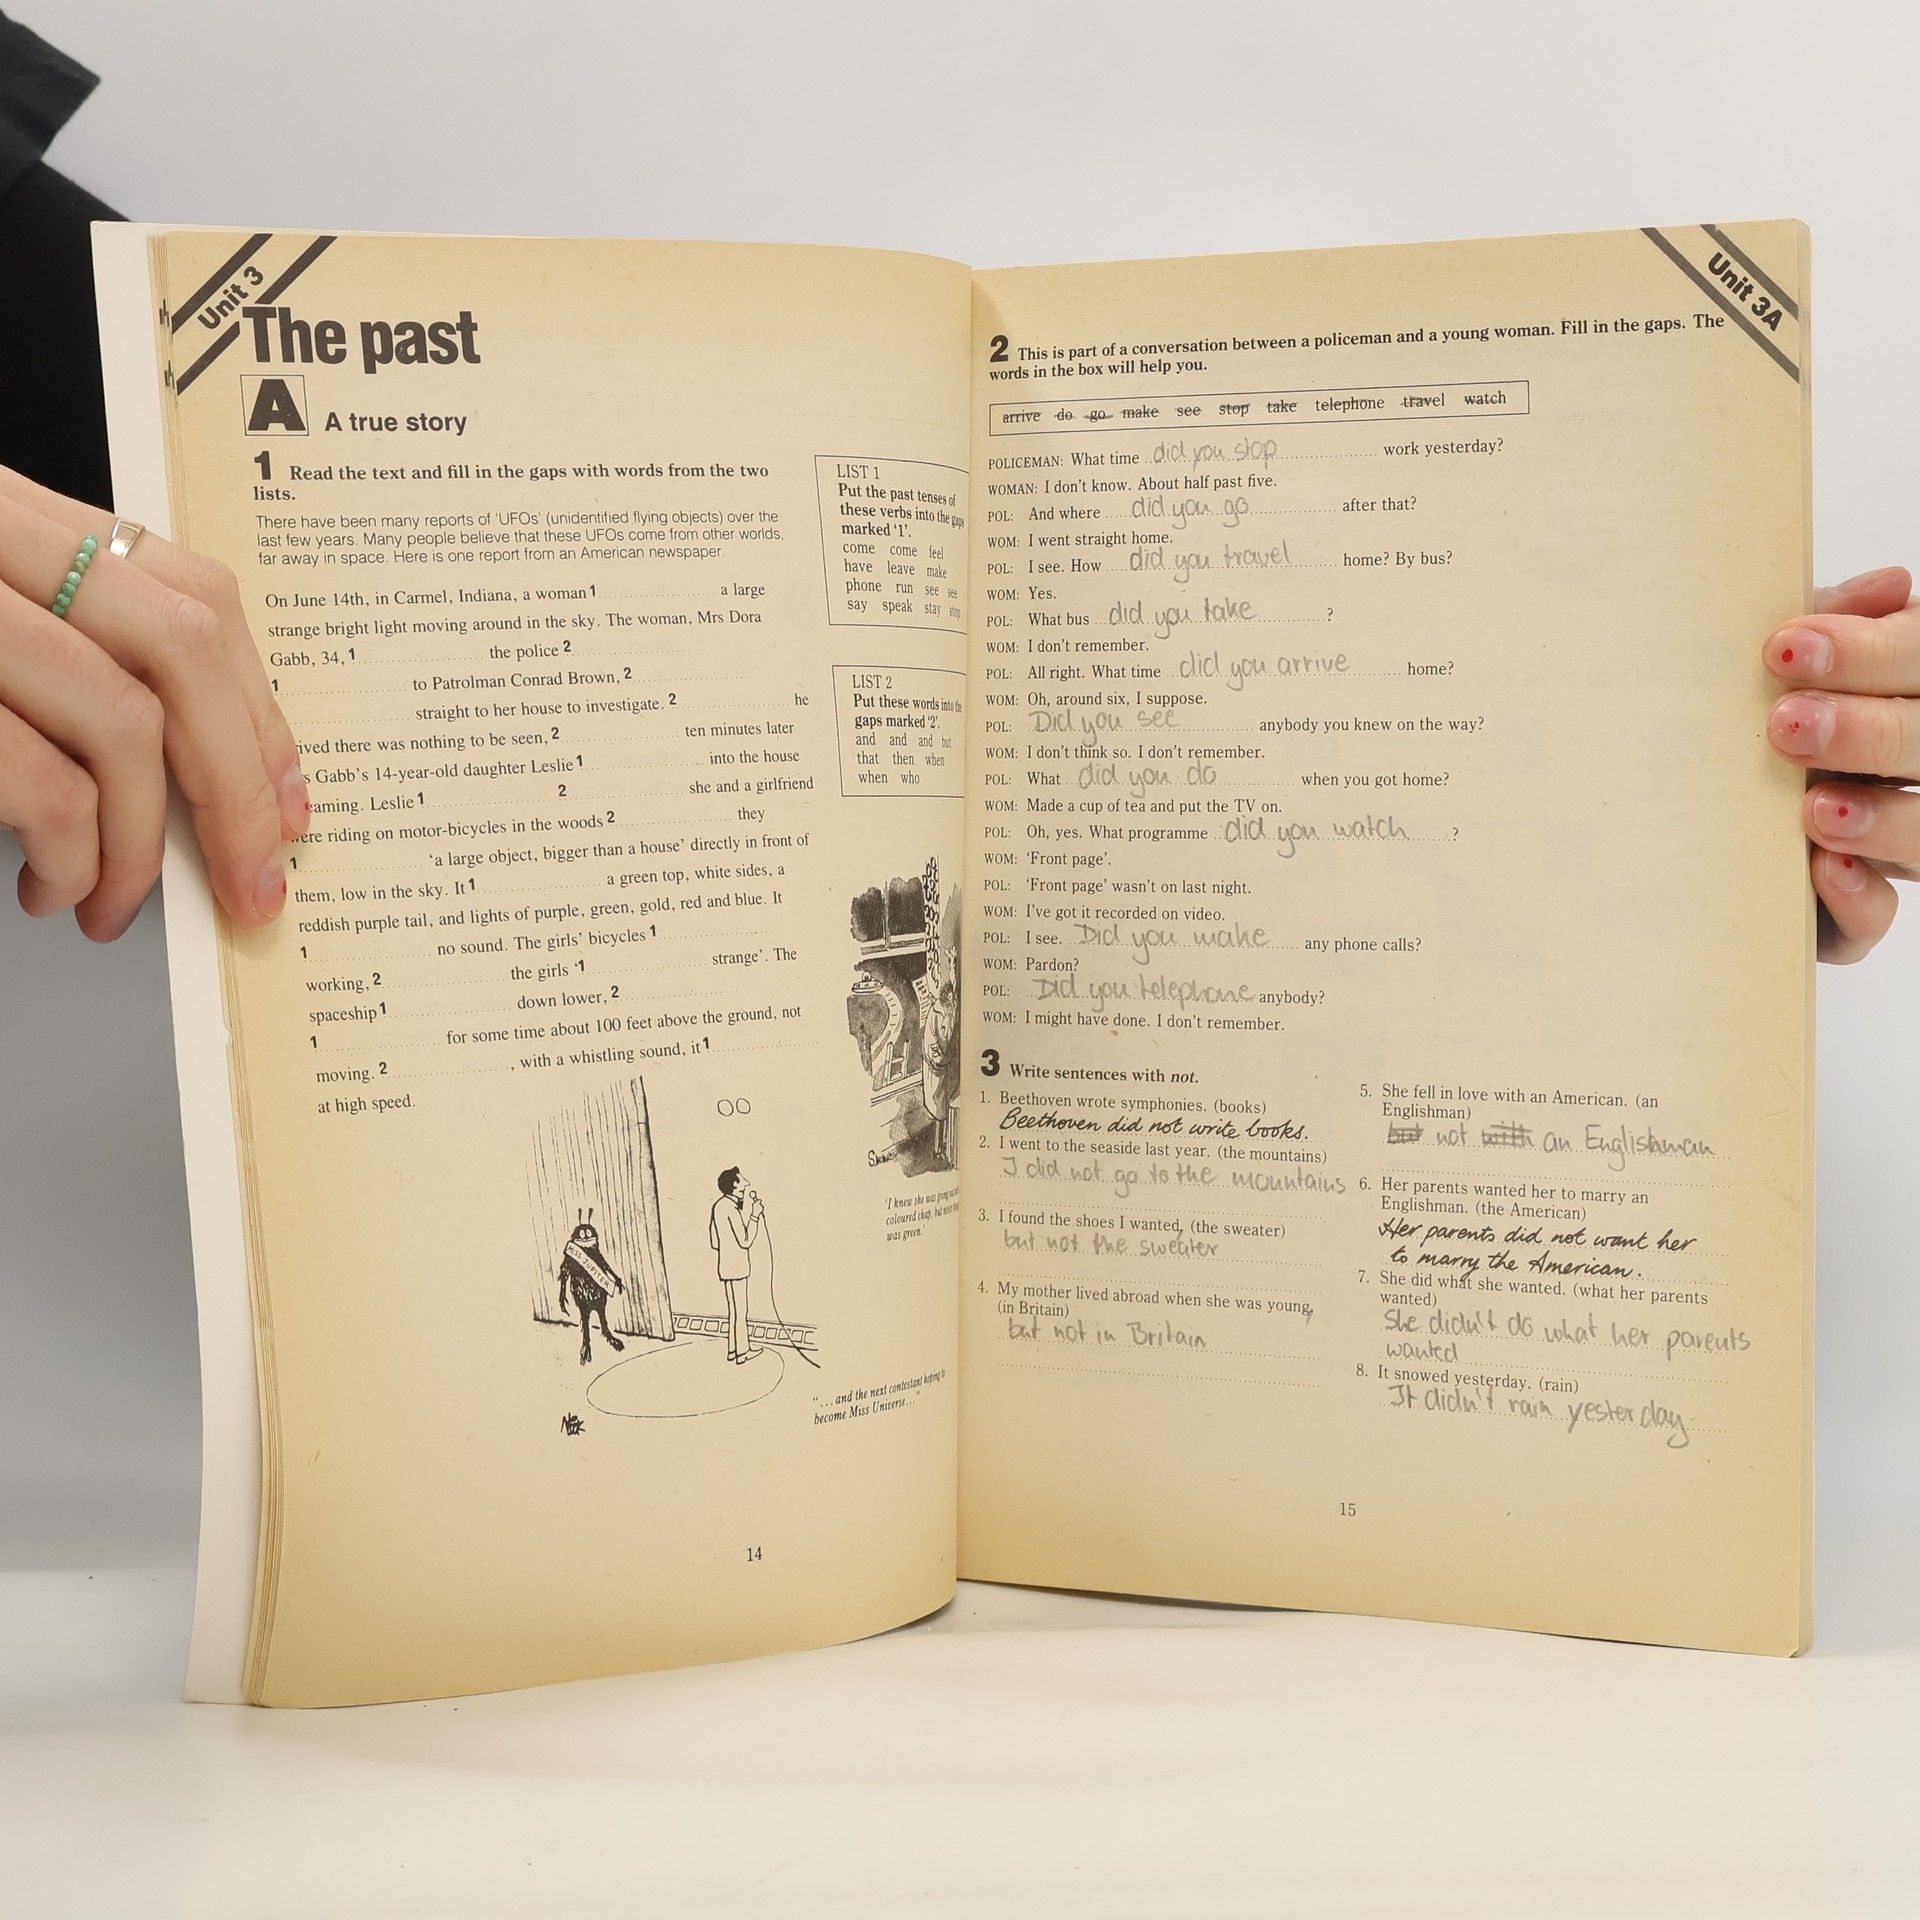 Unit 3
The past
A A true story
1 Read the text and fill in the gaps with words from the two
lists.
There have been many reports of 'UFOs' (unidentified flying objects) over the
last few years. Many people believe that these UFOs come from other worlds,
far away in space. Here is one report from an American newspaper.
On June 14th, in Carmel, Indiana, a woman 1 .......... a large
strange bright light moving around in the sky. The woman, Mrs Dora
Gabb, 34, 1 .......... the police 2 ..........
1 .......... to Patrolman Conrad Brown, 2 ..........
.......... straight to her house to investigate. 2 .......... he
ived there was nothing to be seen, 2 .......... ten minutes later
s Gabb's 14-year-old daughter Leslie 1 .......... into the house
eaming. Leslie 1 .......... 2 .......... she and a girlfriend
were riding on motor-bicycles in the woods 2 .......... they
1 .......... 'a large object, bigger than a house' directly in front of
them, low in the sky. It 1 .......... a green top, white sides, a
reddish purple tail, and lights of purple, green, gold, red and blue. It
1 .......... no sound. The girls' bicycles 1 ..........
working, 2 .......... the girls '1 .......... strange'. The
spaceship 1 .......... down lower, 2 ..........
1 .......... for some time about 100 feet above the ground, not
moving. 2 .........., with a whistling sound, it 1 ..........
at high speed.
LIST 1
Put the past tenses of
these verbs into the gaps
marked '1'.
come come feel
have leave make
phone run see see
say speak stay stop
LIST 2
Put these words into the
gaps marked '2'.
and and and but
that then when
when who
'I knew she was going out
coloured chap, but never
was green.'
MISS JUPITER
Nick
"...and the next contestant hoping to
become Miss Universe..."
14
Unit 3A
2 This is part of a conversation between a policeman and a young woman. Fill in the gaps. The
words in the box will help you.
arrive do go make see stop take telephone travel watch
POLICEMAN: What time did you stop work yesterday?
WOMAN: I don't know. About half past five.
POL: And where did you go after that?
WOM: I went straight home.
POL: I see. How did you travel home? By bus?
WOM: Yes.
POL: What bus did you take ?
WOM: I don't remember.
POL: All right. What time did you arrive home?
WOM: Oh, around six, I suppose.
POL: Did you see anybody you knew on the way?
WOM: I don't think so. I don't remember.
POL: What did you do when you got home?
WOM: Made a cup of tea and put the TV on.
POL: Oh, yes. What programme did you watch ?
WOM: 'Front page'.
POL: 'Front page' wasn't on last night.
WOM: I've got it recorded on video.
POL: I see. Did you make any phone calls?
WOM: Pardon?
POL: Did you telephone anybody?
WOM: I might have done. I don't remember.
3 Write sentences with not.
1. Beethoven wrote symphonies. (books)
Beethoven did not write books.
2. I went to the seaside last year. (the mountains)
I did not go to the mountains
3. I found the shoes I wanted, (the sweater)
but not the sweater
4. My mother lived abroad when she was young,
(in Britain)
but not in Britain
5. She fell in love with an American. (an
Englishman)
but not with an Englishman
6. Her parents wanted her to marry an
Englishman. (the American)
Her parents did not want her
to marry the American.
7. She did what she wanted. (what her parents
wanted)
She didn't do what her parents
wanted
8. It snowed yesterday. (rain)
It didn't rain yesterday
15